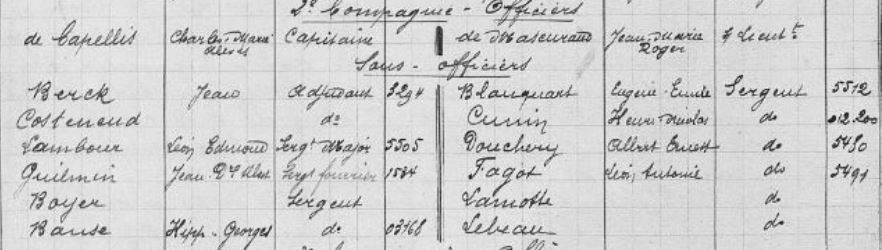 2e Compagnie - Officiers
de Capellis Charles-Marie Capitaine de Mascureau Jean-Marie Roger s/ Lieut t
Sous-officiers
Berck Jean Adjudant 3294 Blanquart Eugène-Emile Sergent 5512
Costenoud do Cunin Henri-Nicolas do 012.200
Lambour Léon Edmond Sergt Major 5505 Douchery Albert Ernest do 5480
Guilmin Jean Bte Albert Sergt fourrier 1584 Fagot Léon Antonie do 5491
Boyer Sergent Lamotte do
Banse Hipp-Georges do 03168 Lebeau do